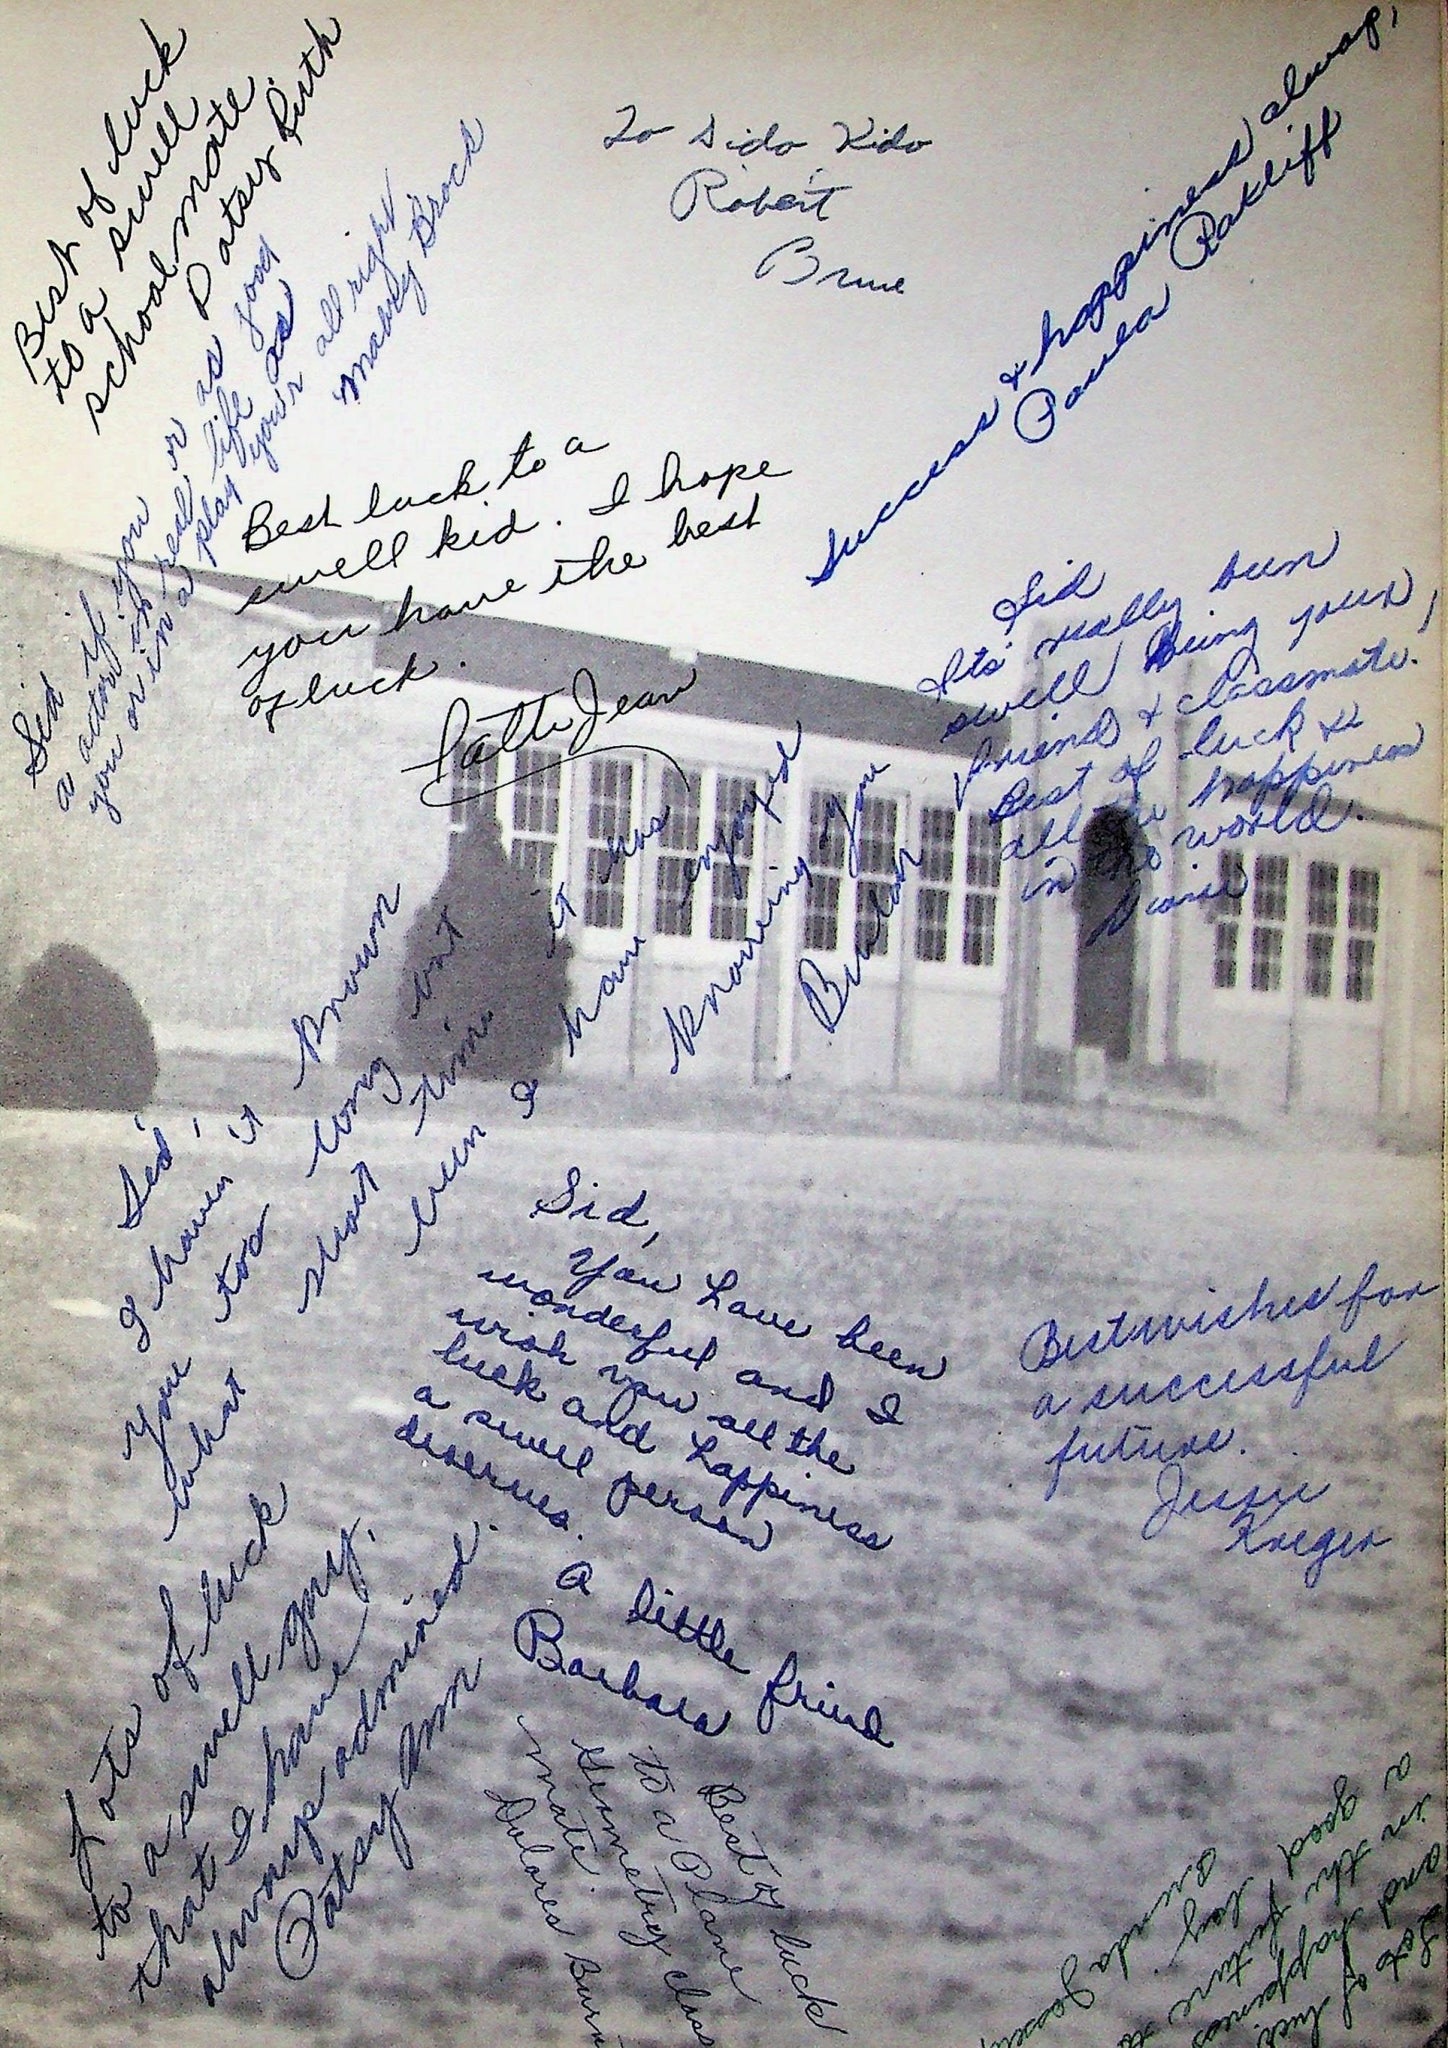 Best of luck
to a swell
schoolmate
Patsy Firth
To Sido Kido
Robert
Brue
Success & happiness always,
Paula Rakliff
Sid if you or as good
a actor in real life as
you or in a play your all right
Mabry Brock
Best luck to a
swell kid. I hope
you have the best
of luck.
Patti Jean
Sid
Its' really been
swell being your
friend & classmate.
Best of luck &
all the happiness
in the world.
Diane
Sid,
I haven't known
you too long but
what short time it has
been I have enjoyed
knowing you
Bulah
Sid,
You have been
wonderful and I
wish you all the
luck and happiness
a swell person
deserves.
A little friend
Barbara
Best wishes for
a successful
future.
Jessie
Kreger
Lots of luck
to a swell guy,
that I have
always admired.
Patsy Ann
Best of luck
to a Plane
Geometry class
mate.
Dolores Burn
Lots of luck
and happiness
in the future to
a good boy.